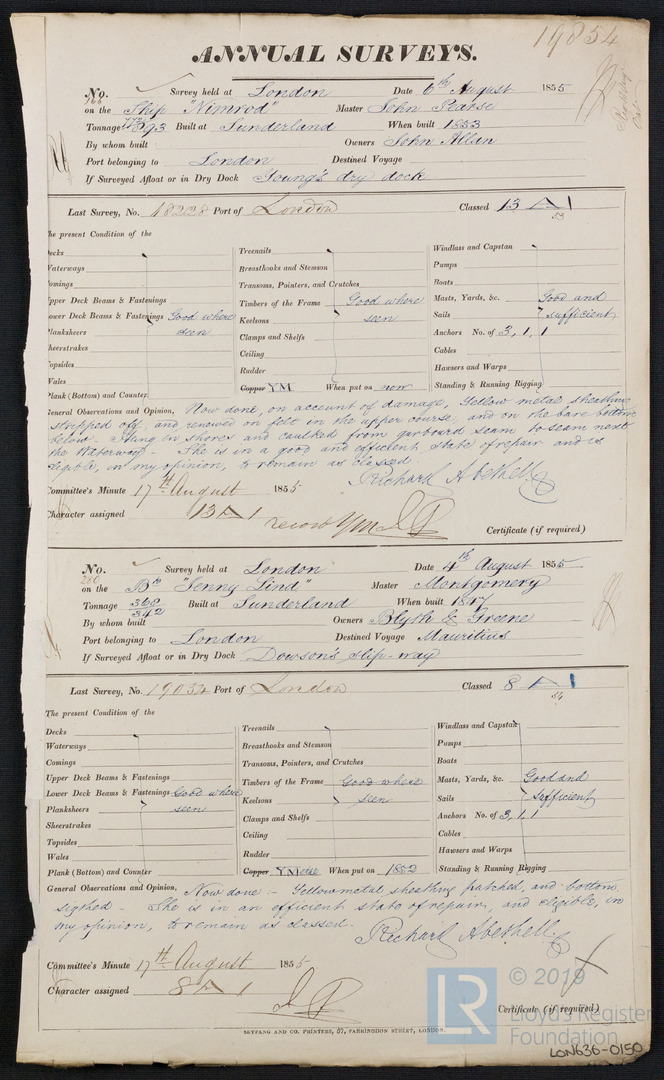 19854
ANNUAL SURVEYS.
No. Survey held at London Date 6th August 1855
on the Ship "Nimrod" Master John Pearse
Tonnage 893 Built at Sunderland When built 1853
By whom built Owners John Allan
Port belonging to London Destined Voyage
If Surveyed Afloat or in Dry Dock Young's dry dock
Last Survey, No. 18228 Port of London Classed 13 A 1
53
The present Condition of the
Decks
Waterways
Comings
Upper Deck Beams & Fastenings
Lower Deck Beams & Fastenings Good where
Planksheers seen
Sheerstrakes
Topsides
Wales
Plank (Bottom) and Counter
Treenails
Breasthooks and Stemson
Transoms, Pointers, and Crutches
Timbers of the Frame Good where
Keelsons seen
Clamps and Shelfs
Ceiling
Rudder
Copper YM When put on now
Windlass and Capstan
Pumps
Boats
Masts, Yards, &c. Good and
Sails sufficient
Anchors No. of 3, 1, 1
Cables
Hawsers and Warps
Standing & Running Rigging
General Observations and Opinion, Now done, on account of damage, Yellow metal sheathing
stripped off, and renewed on felt in the upper course, and on the bare bottom
below. Hung in shores and caulked from garboard seam to seam next
the Waterways – She is in a good and efficient state of repair and is
eligible, in my opinion, to remain as classed.
Richard Abethell
Committee's Minute 17th August 1855
Character assigned 13 A 1
record YM
Certificate (if required)
No. Survey held at London Date 4th August 1855
on the Bk "Jenny Lind" Master Montgomery
Tonnage 368 Built at Sunderland When built 1847
342
By whom built Owners Blyth & Greene
Port belonging to London Destined Voyage Mauritius
If Surveyed Afloat or in Dry Dock Dowson's slip-way
Last Survey, No. 19032 Port of London Classed 8 A 1
54
The present Condition of the
Decks
Waterways
Comings
Upper Deck Beams & Fastenings
Lower Deck Beams & Fastenings Good where
Planksheers seen
Sheerstrakes
Topsides
Wales
Plank (Bottom) and Counter
Treenails
Breasthooks and Stemson
Transoms, Pointers, and Crutches
Timbers of the Frame Good where
Keelsons seen
Clamps and Shelfs
Ceiling
Rudder
Copper YM When put on 1852
Windlass and Capstan
Pumps
Boats
Masts, Yards, &c. Good and
Sails sufficient
Anchors No. of 3, 1, 1
Cables
Hawsers and Warps
Standing & Running Rigging
General Observations and Opinion, Now done – Yellowmetal sheathing patched, and bottom
sighted – She is in an efficient state of repair, and eligible, in
my opinion, to remain as classed.
Richard Abethell
Committee's Minute 17th August 1855
Character assigned 8 A 1
Certificate (if required)
SEYFANG AND CO. PRINTERS, 57, FARRINGDON STREET, LONDON.
LR
© 2019
Lloyd's Register
Foundation
LON636-0150